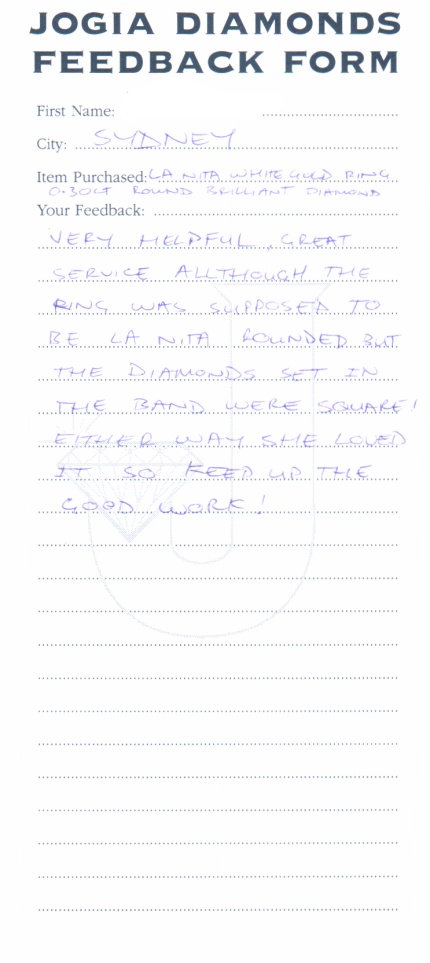 JOGIA DIAMONDS
FEEDBACK FORM
First Name:
City: SYDNEY
Item Purchased: LA NITA WHITE GOLD RING
0.30CT ROUND BRILLIANT DIAMOND
Your Feedback:
VERY HELPFUL, GREAT
SERVICE ALLTHOUGH THE
RING WAS SUPPOSED TO
BE LA NITA ROUNDED BUT
THE DIAMONDS SET IN
THE BAND WERE SQUARE!
EITHER WAY SHE LOVED
IT SO KEEP UP THE
GOOD WORK!